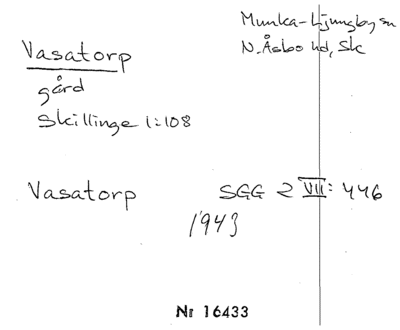 Munka-Ljungby sn
N. Åsbo hd, Sk
Vasatorp
gård
Skillinge 1:108
Vasatorp SGG 2 VII: 446
1943
Nr 16433